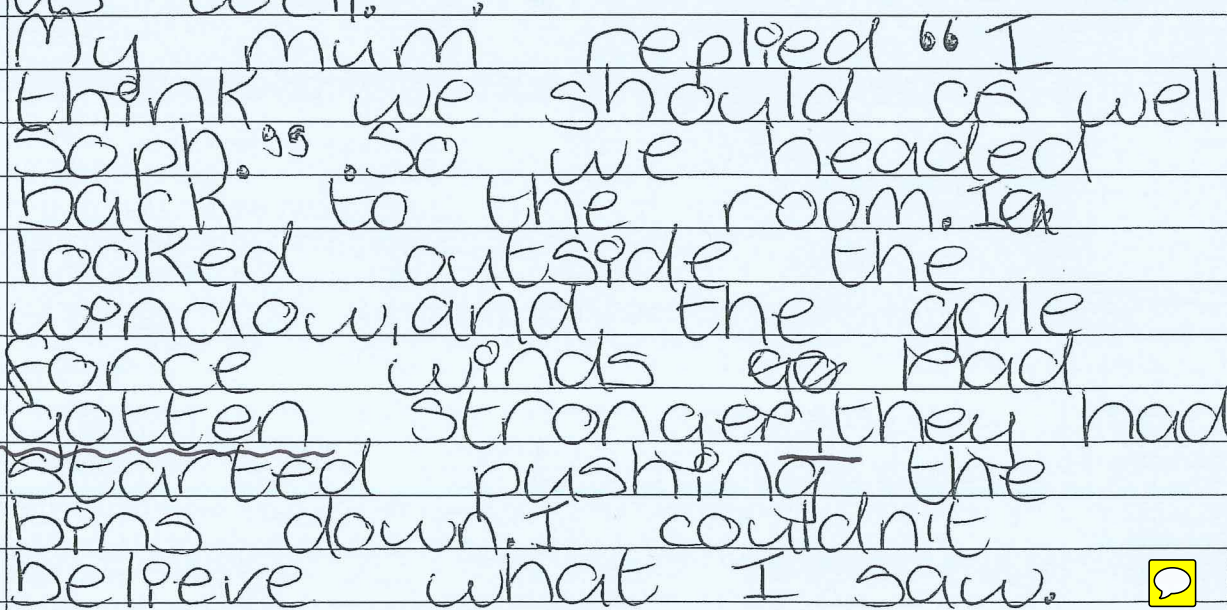 as well.
My mum replied “I
think we should as well
Soph.” .So we headed
back to the room. I
looked outside the
window,and the gale
force winds had
gotten stronger,they had
started pushing the
bins down.I couldn't
believe what I saw.